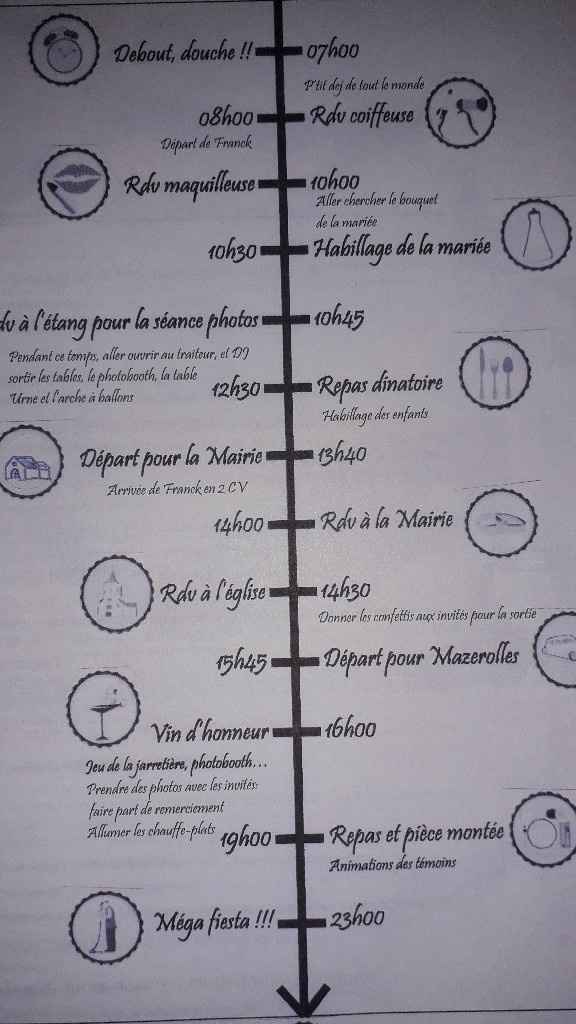 Debout, douche !! 07h00
P'tit dej de tout le monde
08h00 Rdv coiffeuse
Départ de Franck
Rdv maquilleuse 10h00
Aller chercher le bouquet
de la mariée
10h30 Habillage de la mariée
à l'étang pour la séance photos 10h45
Pendant ce temps, aller ouvrir au traiteur, et DJ
sortir les tables, le photobooth, la table
Urne et l'arche à ballons
12h30 Repas dînatoire
Habillage des enfants
Départ pour la Mairie 13h40
Arrivée de Franck en 2 CV
14h00 Rdv à la Mairie
Rdv à l'église 14h30
Donner les confettis aux invités pour la sortie
15h45 Départ pour Mazerolles
Vin d'honneur 16h00
Jeu de la jarretière, photobooth...
Prendre des photos avec les invités:
faire part de remerciement
Allumer les chauffe-plats
19h00 Repas et pièce montée
Animations des témoins
Méga fiesta !!! 23h00